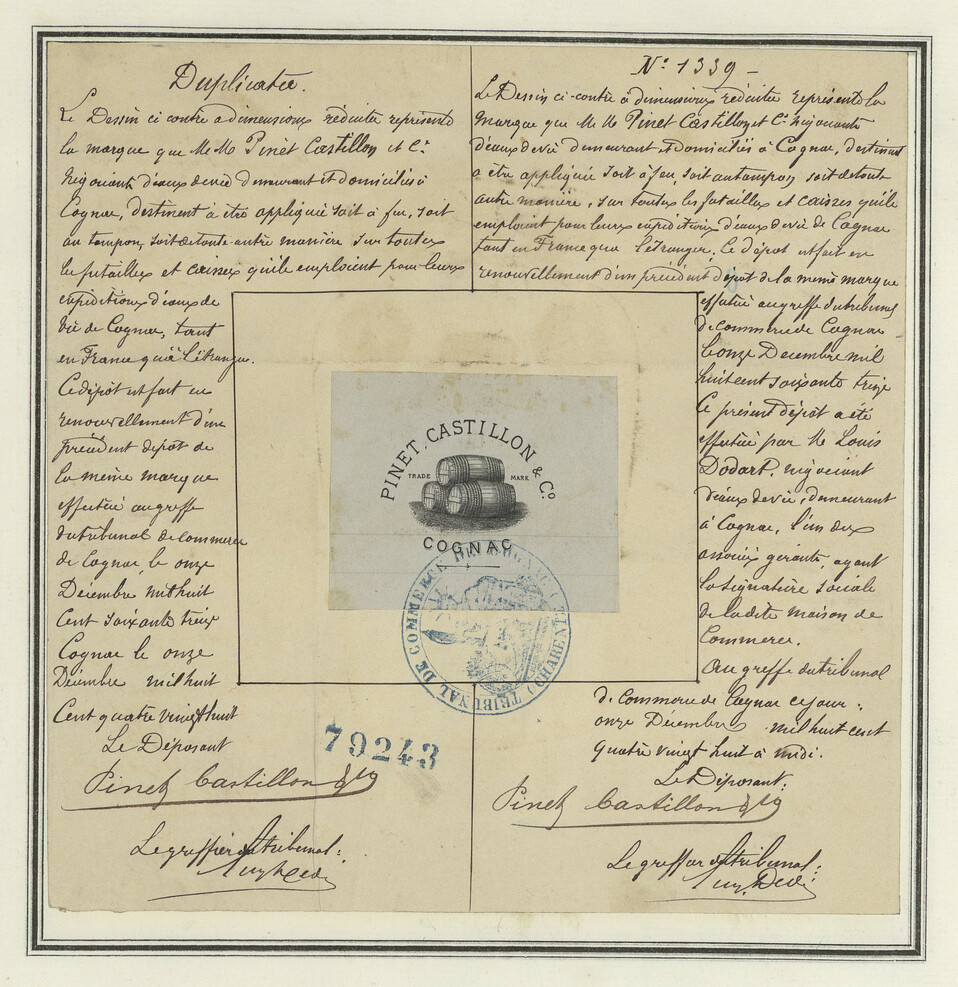 Duplicata.
Le Dessin ci contre à dimensions réduites représente
la marque que M M Pinet Castillon et Cie
négociants d'eaux de vie demeurant et domiciliés à
Cognac, destinent à être appliquée soit à feu, soit
au tampon, soit de toute autre manière sur toutes
les futailles et caisses qu'ils emploient pour leurs
expéditions d'eaux de
vie de Cognac, tant
en France qu'à l'étranger.
Ce dépôt est fait en
renouvellement d'un
précédent dépôt de
la même marque
effectué au greffe
du tribunal de commerce
de Cognac le onze
Décembre mil huit
Cent soixante treize
Cognac le onze
Décembre mil huit
Cent quatre vingt huit
Le Déposant
Pinet Castillon & Co
Le greffier du tribunal:
79243
No 1339 -
Le Dessin ci-contre à dimensions réduites représente la
marque que M M Pinet Castillon et Cie négociants
d'eaux de vie demeurant et domiciliés à Cognac, destinent
a être appliquée soit à feu, soit au tampon, soit de toute
autre manière, sur toutes les futailles et caisses qu'ils
emploient pour leurs expéditions d'eaux de vie de Cognac
tant en France que l'étranger. Ce dépôt est fait en
renouvellement d'un précédent dépôt de la même marque
effectué au greffe du tribunal
de commerce de Cognac
le onze Decembre mil
huit cent soixante treize
Ce présent dépôt a été
effectué par M. Louis
Dodart, négociant
d'eaux de vie, demeurant
à Cognac, l'un des
associés gérants, ayant
la signature sociale
de la dite maison de
Commerce.
Au greffe du tribunal
de commerce de Cognac ce jour:
onze Décembre mil huit cent
quatre vingt huit à midi.
Le Déposant:
Pinet Castillon & Co
Le greffier du tribunal:
PINET, CASTILLON & Co.
TRADE MARK
COGNAC
TRIBUNAL DE COMMERCE DE COGNAC (CHARENTE)